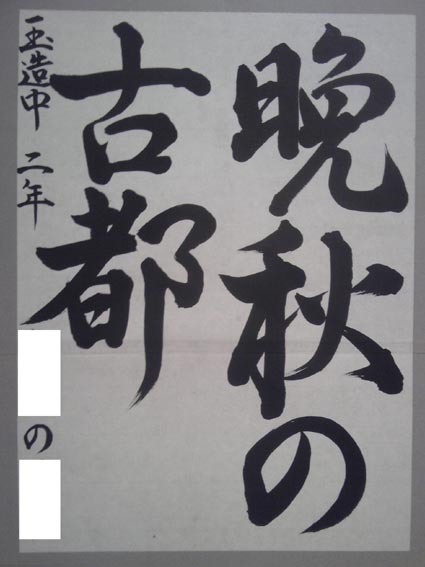 晩秋の
古都
玉造中 二年
の